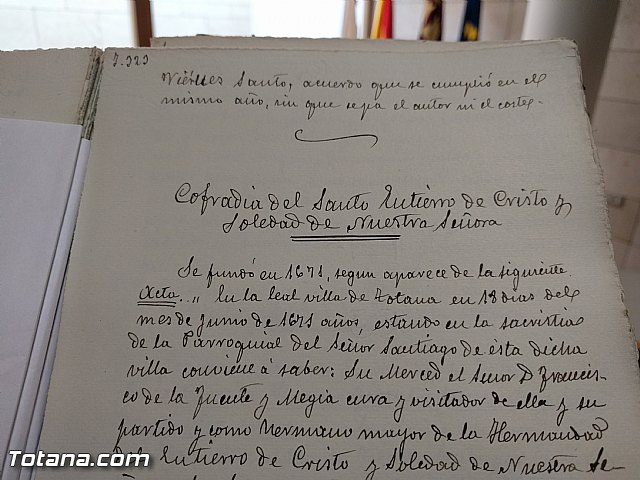 7.323
Viérnes Santo, acuerdo que se cumplió en el
mismo año, sin que sepa el autor ni el coste.
Cofradia del Santo Entierro de Cristo y
Soledad de Nuestra Señora
Se fundó en 1671, segun aparece de la siguiente
Acta..,, En la leal villa de Totana en 18 dias del
mes de Junio de 1671 años, estando en la sacristia
de la Parroquial del Señor Santiago de ésta dicha
villa conviene á saber: Su Merced el Señor D. Francis-
co de la Fuente y Megia cura y visitador de ella y su
partido y como Hermano mayor de la Hermandad
del Entierro de Cristo y Soledad de Nuestra Se-
Totana.com